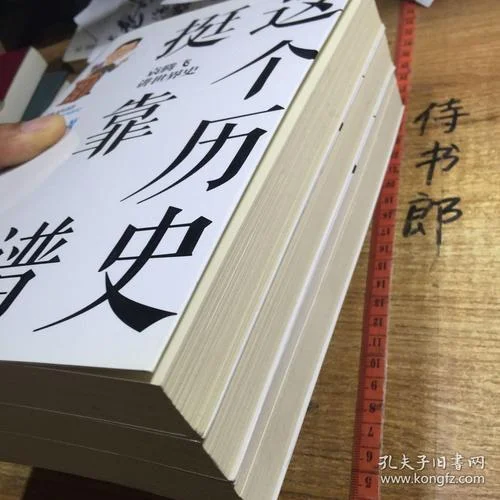 这个历史
挺靠谱
袁腾飞
讲世界史
侍书郎
孔夫子旧书网
www.kongfz.com